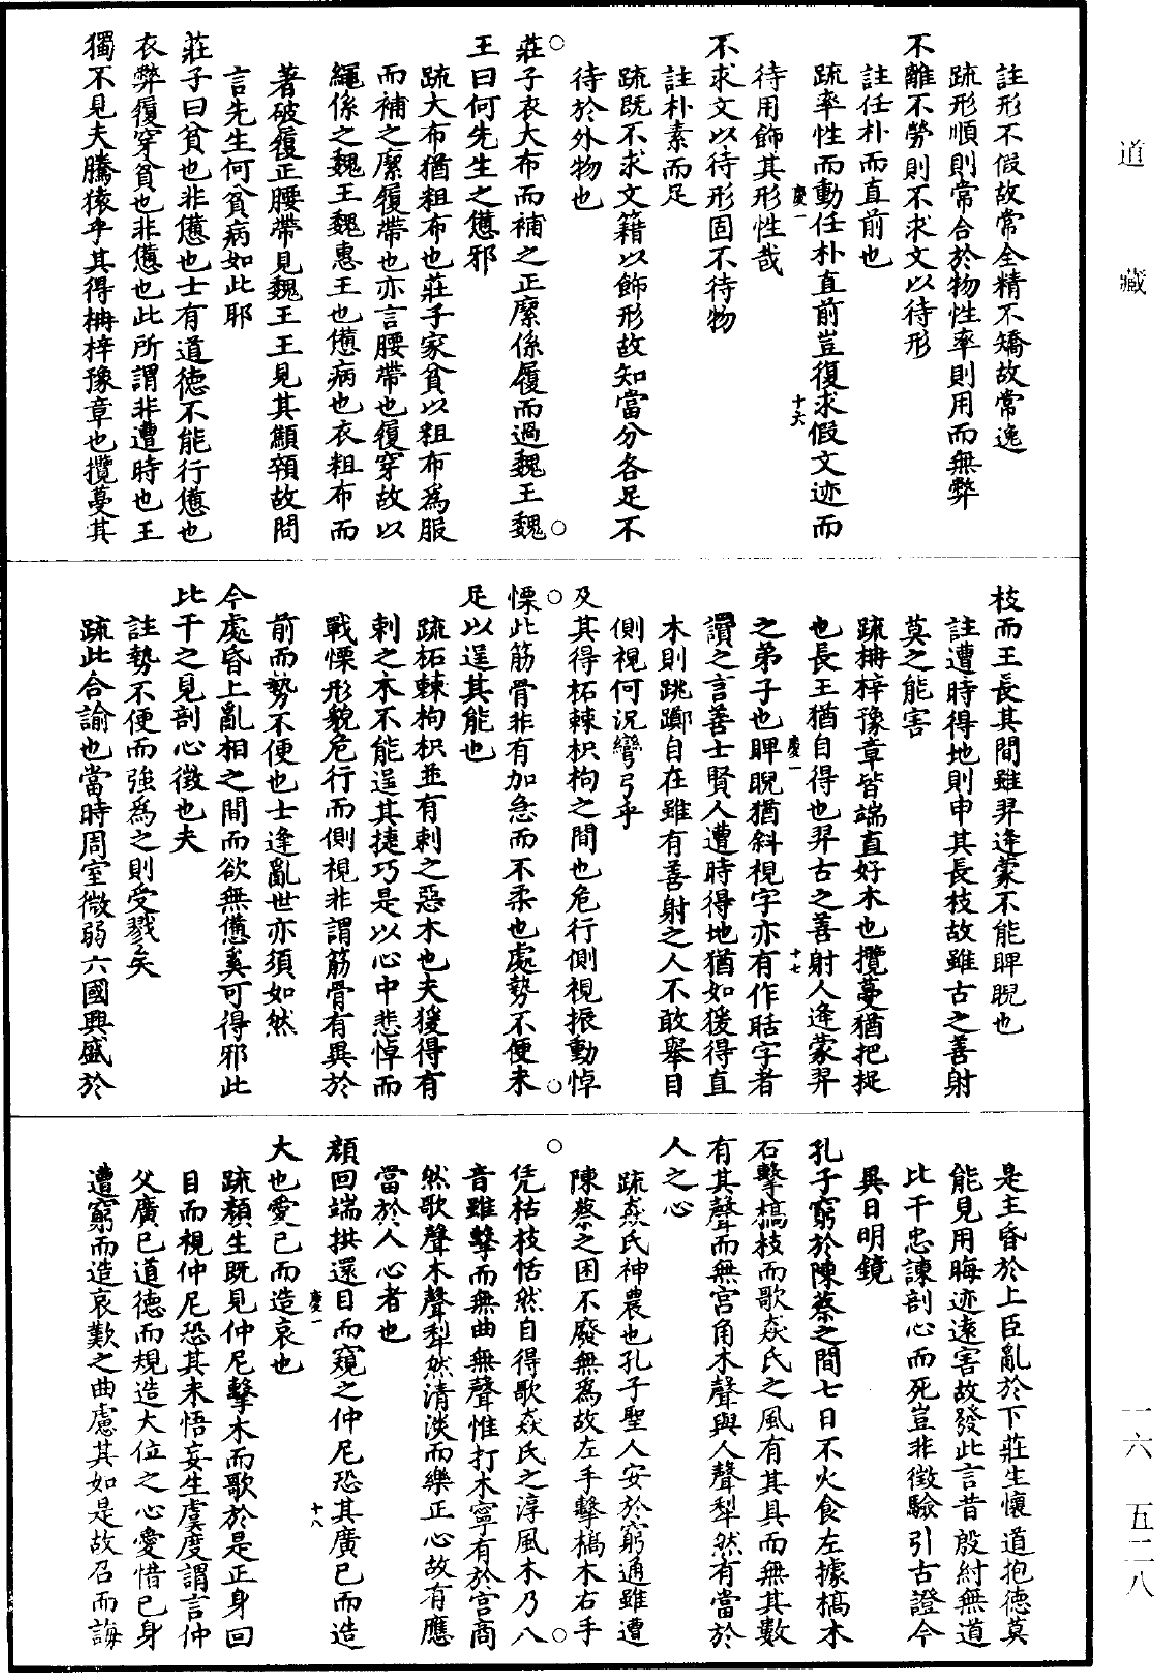 道藏
註形不假故常全精不矯故常逸
疏形順則常合於物性率則用而無弊
不離不勞則不求文以待形
註任朴而直前也
疏率性而動任朴直前豈復求假文迹而
慶一 十六
待用飾其形性哉
不求文以待形固不待物
註朴素而足
疏既不求文籍以飾形故知當分各足不
待於外物也
莊子衣大布而補之正縻係履而過魏王魏
王曰何先生之憊邪
疏大布猶粗布也莊子家貧以粗布爲服
而補之縻履帶也亦言腰帶也履穿故以
繩係之魏王魏惠王也憊病也衣粗布而
著破履正腰帶見魏王王見其顦顇故問
言先生何貧病如此耶
莊子曰貧也非憊也士有道德不能行憊也
衣弊履穿貧也非憊也此所謂非遭時也王
獨不見夫騰猿乎其得柟梓豫章也攬蔓其
枝而王長其間雖羿逢蒙不能睥睨也
註遭時得地則申其長枝故雖古之善射
莫之能害
疏柟梓豫章皆端直好木也攬蔓猶把捉
也長王猶自得也羿古之善射人逢蒙羿
慶一 十七
之弟子也睥睨猶斜視字亦有作䀨字者
讚之言善士賢人遭時得地猶如猨得直
木則跳躑自在雖有善射之人不敢舉目
側視何況彎弓乎
及其得柘棘枳枸之間也危行側視振動悼
慄此筋骨非有加急而不柔也處勢不便未
足以逞其能也
疏柘棘枸枳並有刺之惡木也夫猨得有
刺之木不能逞其捷巧是以心中悲悼而
戰慄形貌危行而側視非謂筋骨有異於
前而勢不便也士逢亂世亦須如然
今處昏上亂相之間而欲無憊奚可得邪此
比干之見剖心徵也夫
註勢不便而強爲之則受戮矣
疏此合諭也當時周室微弱六國興盛於
是主昏於上臣亂於下莊生懷道抱德莫
能見用晦迹遠害故發此言昔殷紂無道
比干忠諫剖心而死豈非徵驗引古證今
異日明鏡
孔子窮於陳蔡之間七日不火食左據槁木
右擊槁枝而歌焱氏之風有其具而無其數
有其聲而無宮角木聲與人聲犁然有當於
人之心
疏焱氏神農也孔子聖人安於窮通雖遭
陳蔡之困不廢無爲故左手擊槁木右手
凭枯枝恬然自得歌焱氏之淳風木乃八
音雖擊而無曲無聲惟打木寧有於宮商
然歌聲木聲犁然清淡而樂正心故有應
當於人心者也
慶一 十八
顏回端拱還目而窺之仲尼恐其廣己而造
大也愛己而造哀也
疏顏生既見仲尼擊木而歌於是正身回
目而視仲尼恐其未悟妄生虞度謂言仲
父廣己道德而規造大位之心愛惜己身
遭窮而造哀歎之曲慮其如是故召而誨
一六 五二八